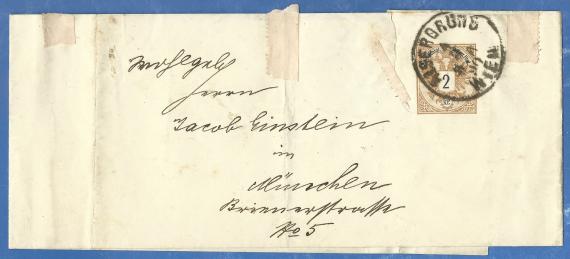 Wohlgeb
Herrn
Jacob Einstein
in
München
Briennerstrasse
No 5
ALSERGRUND
WIEN
2